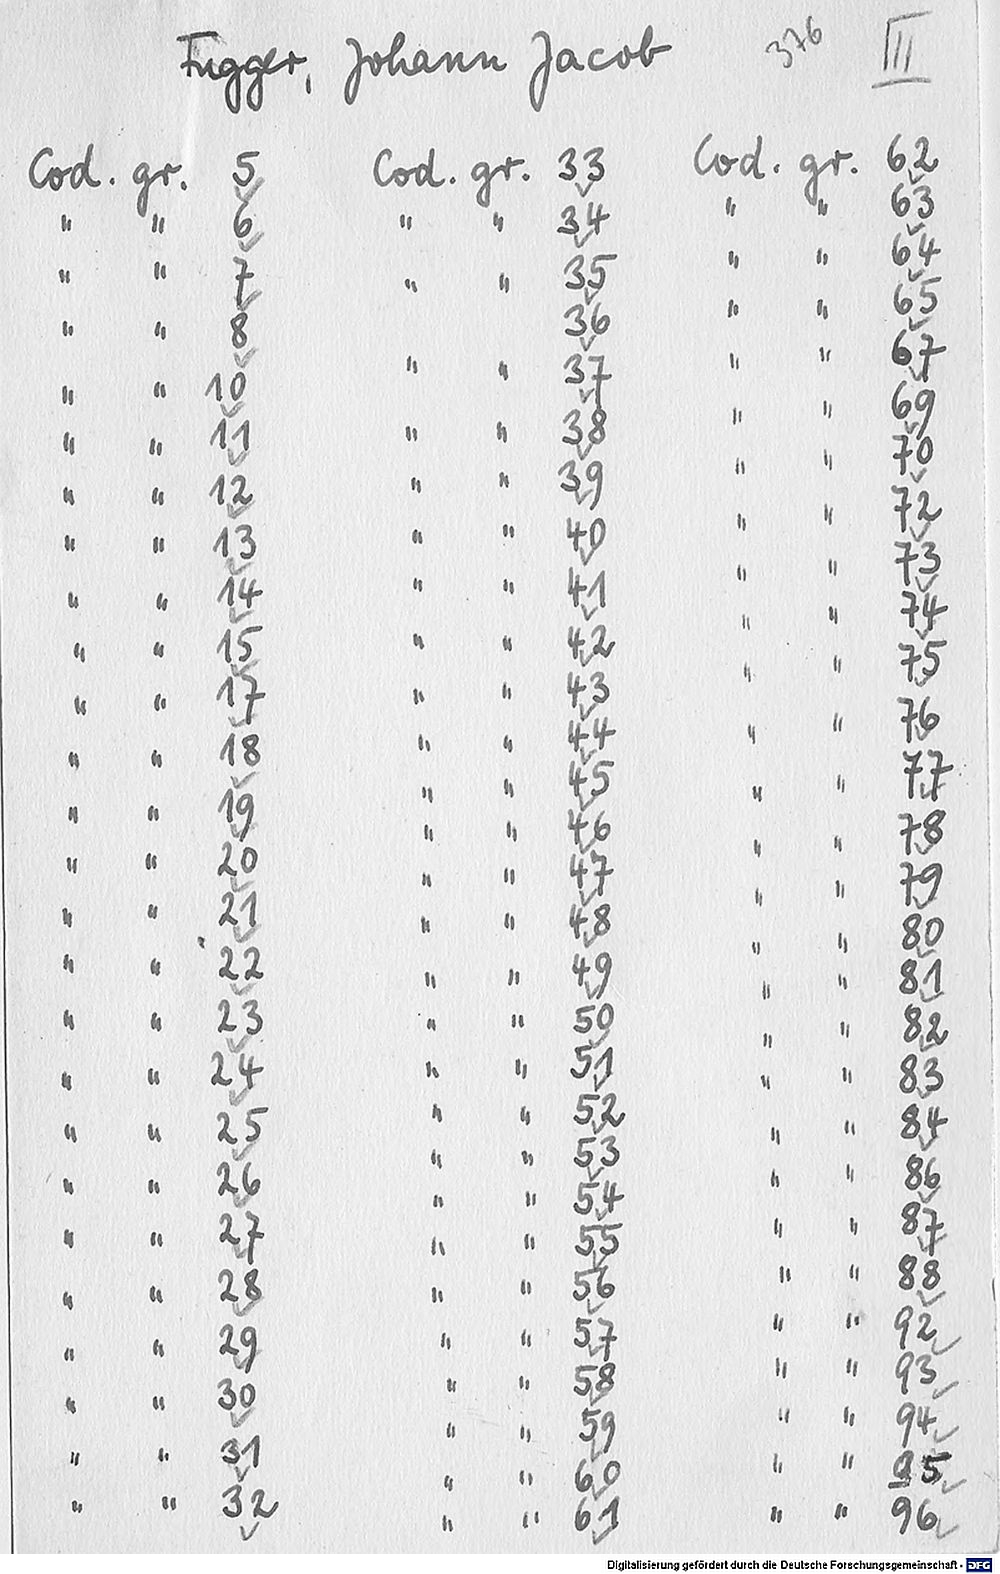 Fugger, Johann Jacob 376 III
Cod. gr. 5
" " 6
" " 7
" " 8
" " 10
" " 11
" " 12
" " 13
" " 14
" " 15
" " 17
" " 18
" " 19
" " 20
" " 21
" " 22
" " 23
" " 24
" " 25
" " 26
" " 27
" " 28
" " 29
" " 30
" " 31
" " 32
Cod. gr. 33
" " 34
" " 35
36
" " 37
" " 38
" " 39
" " 40
" " 41
" " 42
" " 43
" " 44
" " 45
" " 46
" " 47
" " 48
" " 49
" " 50
" " 51
" " 52
" " 53
" " 54
" " 55
" " 56
" " 57
" " 58
" " 59
" " 60
" " 61
Cod. gr. 62
" " 63
" " 64
" " 65
" " 67
" " 69
" " 70
" " 72
" " 73
" " 74
" " 75
" " 76
" " 77
" " 78
" " 79
" " 80
" " 81
" " 82
" " 83
" " 84
" " 86
" " 87
" " 88
" " 92
" " 93
" " 94
" " 95
" " 96
Digitalisierung gefördert durch die Deutsche Forschungsgemeinschaft - DFG